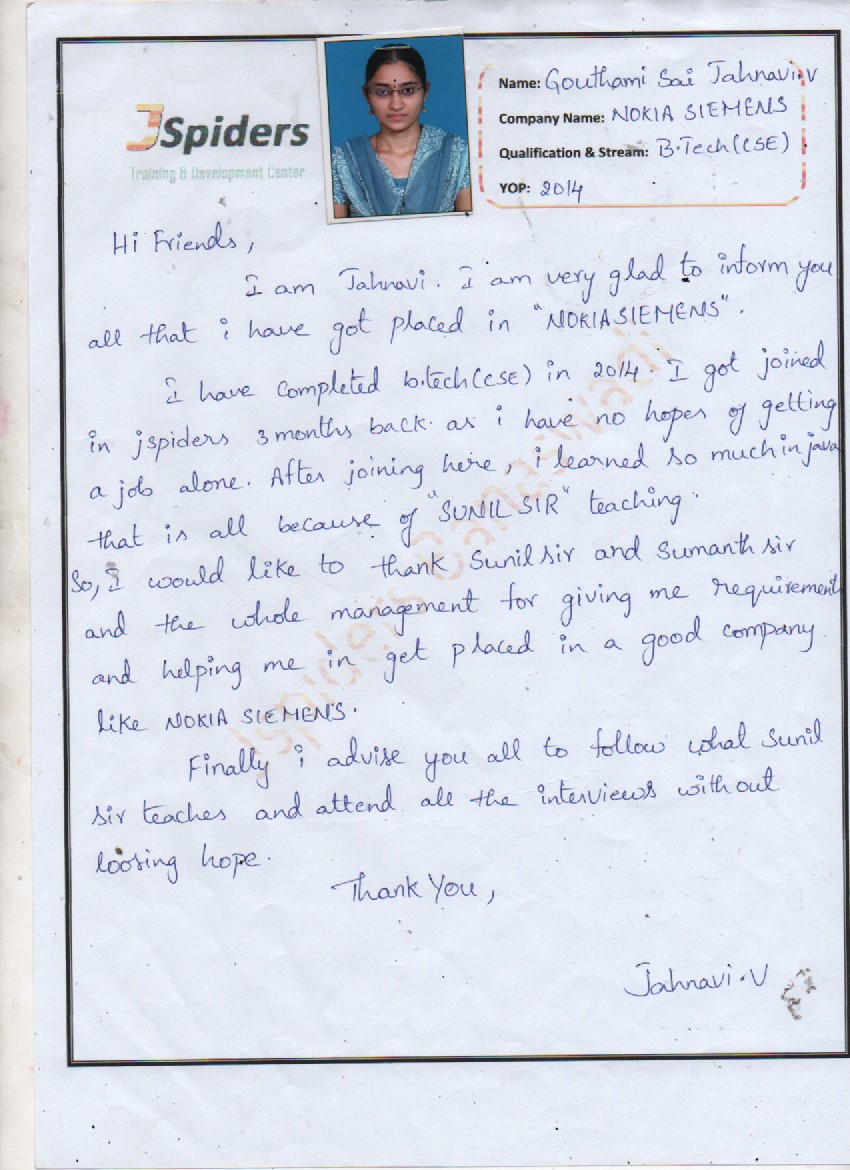 JSpiders
Training & Development Center
Name: Gouthami Sai Jahnavi.V
Company Name: NOKIA SIEMENS
Qualification & Stream: B.Tech(CSE)
YOP: 2014
Hi Friends,
I am Jahnavi. I am very glad to inform you
all that i have got placed in "NOKIASIEMENS".
I have completed b.tech(CSE) in 2014. I got joined
in jspiders 3 months back. as i have no hopes of getting
a job alone. After joining here, i learned so much in java
that is all because of "SUNIL SIR" teaching.
So, I would like to thank Sunil sir and Sumanth sir
and the whole management for giving me requirement
and helping me in get placed in a good company
like NOKIA SIEMENS.
Finally i advise you all to follow what Sunil
sir teaches and attend all the interviews without
loosing hope.
Thank You,
Jahnavi.V
Jspiders Banaswadi